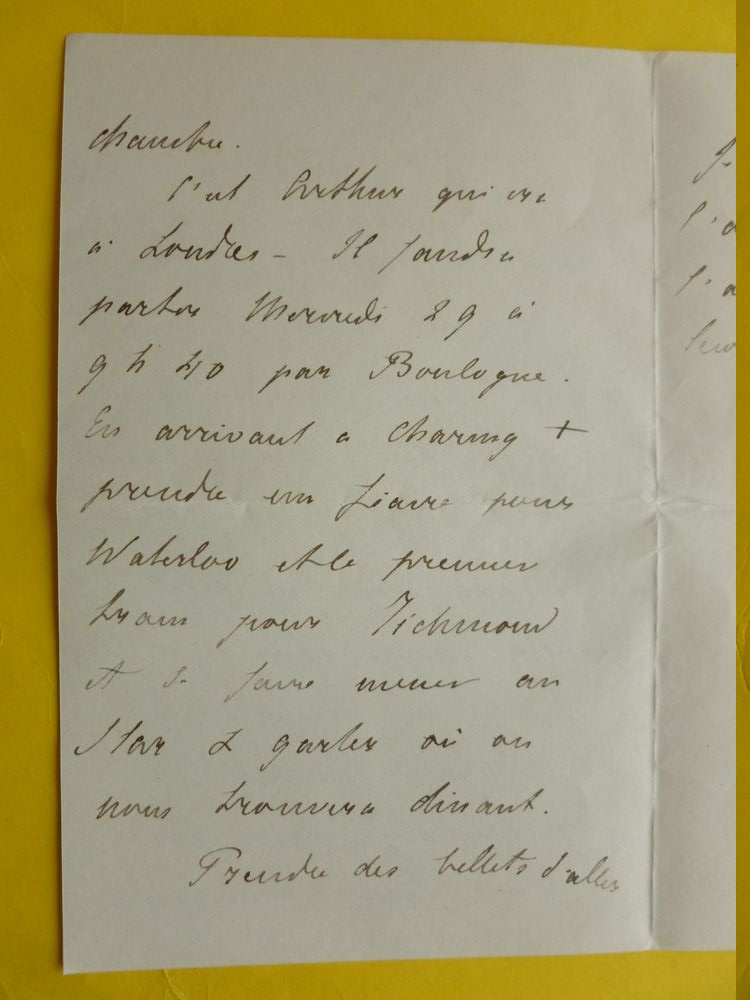 chambre.
C'est Arthur qui ira
à Londres - Il faudra
partir Mercredi 29 à
9 h 40 par Boulogne.
En arrivant a Charing +
prendre un fiacre pour
Waterloo et le premier
train pour Richmond
et se faire mener au
Star & garter où on
nous trouvera dinant.
Prendre des billets d'aller